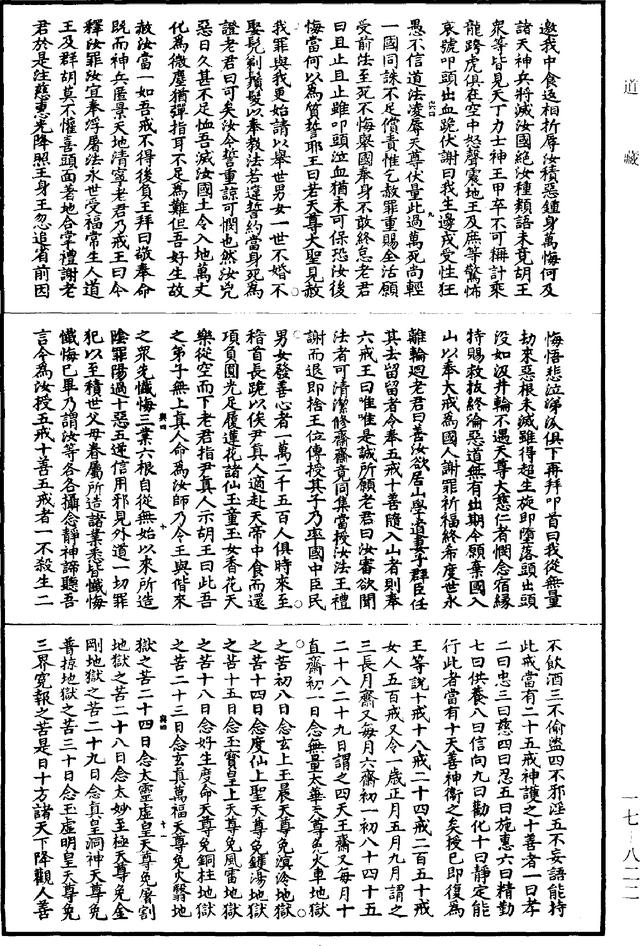 道藏
邀我中食返相折辱汝積惡鍾身萬悔何及
諸天神兵將滅汝國絕汝種類語未竟胡王
衆等皆見天丁力士神王甲卒不可稱計乘
龍跨虎俱在空中怒聲震地王及庶等驚怖
哀號叩頭出血跪伏謝曰我生邊戎受性狂
愚不信道法凌辱天尊伏量此過萬死尚輕
一國同誅不足償責惟乞赦罪重賜全活願
受前法至死不悔舉國奉身不敢終怠老君
曰且止且止雖叩頭泣血猶未可保恐汝後
悔當何以爲質誓耶王曰若天尊大聖見赦
我罪與我更始請以舉世男女一世不婚不
娶髡剃鬚髮以奉教法若違誓約當身死爲
證老君曰可矣汝今誓重諒可憫也然汝兇
惡日久甚不足恤吾滅汝國土令入地萬丈
化爲微塵猶彈指耳不足爲難但吾好生故
赦汝當一如吾戒不得後負王拜曰敬奉命
既而神兵匿景天地清寧老君乃戒王曰今
釋汝罪汝宜奉浮屠法永世受福常生人道
王及群胡莫不懽喜頭面著地合掌禮謝老
君於是注慈惠光降照王身王忽追省前因
悔悟悲泣涕淚俱下再拜叩首曰我從無量
劫來惡根未滅雖得超生旋即墮落頭出頭
没如汲井輪不遇天尊大慈仁者憫念宿緣
特賜救拔終淪惡道無有出期今願棄國入
山以奉大戒爲國人謝罪祈福終希度世永
離輪廻老君曰善汝欲居山學道妻子群臣任
其去留留者令奉五戒十善隨入山者則奉
六戒王曰唯唯是誠所願老君曰汝審欲聞
法者可清潔修齋齋竟同集當授汝法王禮
謝而退即捨王位傳授其子乃率國中臣民
男女發善心者一萬二千五百人俱時來至
稽首長跪以俟尹真人適赴天帝中食而還
項負圓光足履蓮花諸仙玉童玉女香花天
樂從空而下老君指尹真人示胡王曰此吾
之弟子無上真人命爲汝師乃令王與偕來
之衆先懺悔三業六根自從無始以來所造
陰罪陽過十惡五逆信用邪見外道一切罪
犯以至積世父母眷屬所造諸業悉皆懺悔
懺悔已畢乃謂汝等各各攝念靜神諦聽吾
言今爲汝授五戒十善五戒者一不殺生二
不飲酒三不偷盜四不邪淫五不妄語能持
此戒當有二十五戒神護之十善者一曰孝
二曰忠三曰慈四曰忍五曰施惠六曰精勤
七曰供養八曰信向九曰勸化十曰靜定能
行此者當有十天善神衛之矣授已即復爲
王等說十戒十八戒二十四戒二百五十戒
女人五百戒又令一歲正月五月九月謂之
三長月齋又每月六齋初一初八十四十五
二十八二十九日謂之四天王齋又每月十
直齋初一日念無量太華天尊免火車地獄
之苦初八日念玄上玉晨天尊免溟泠地獄
之苦十四日念度仙上聖天尊免鑊湯地獄
之苦十五日念玉寶皇上天尊免風雷地獄
之苦十八日念好生度命天尊免銅柱地獄
之苦二十三日念玄真萬福天尊免火翳地
獄之苦二十四日念太靈虛皇天尊免屠割
地獄之苦二十八日念太妙至極天尊免金
剛地獄之苦二十九日念真皇洞神天尊免
普掠地獄之苦三十日念玉虛明皇天尊免
三界寃報之苦是日十方諸天下降觀人善
一七-八二二